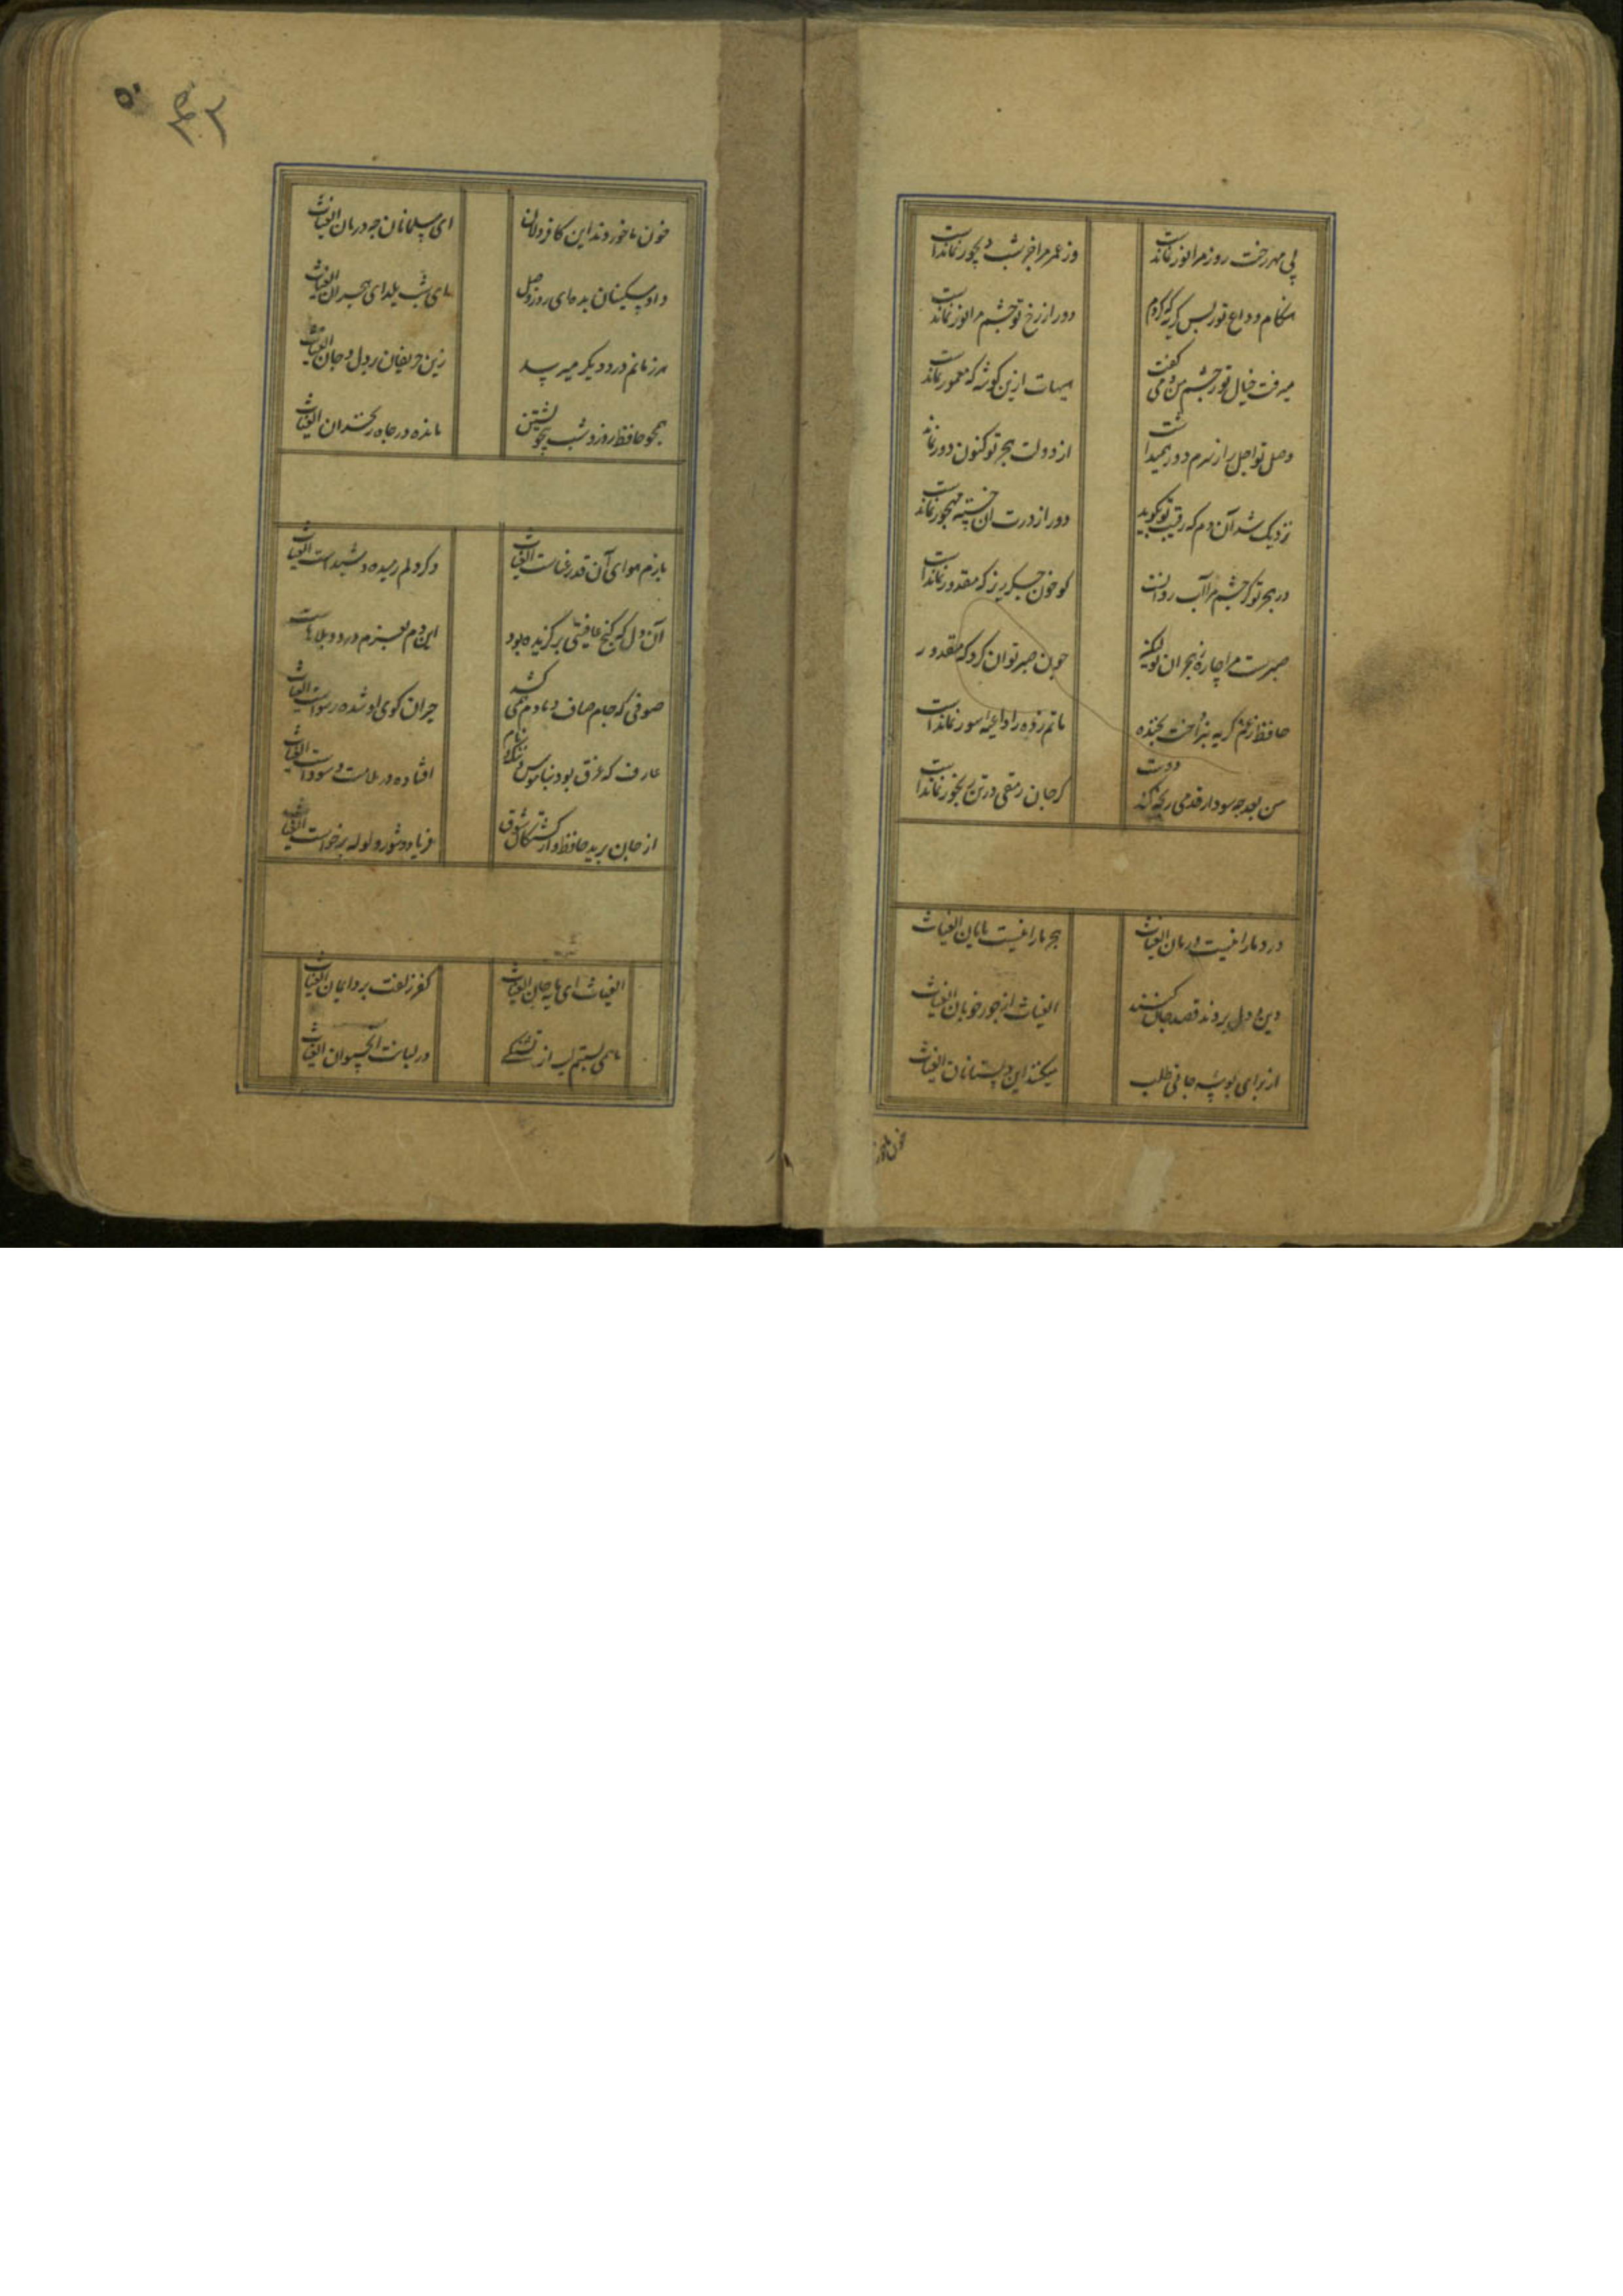 بی مهر رخت روز مرا نور نماندست
وز عمر مرا جز شب دیجور نماندست
هنگام وداع تو ز بس گریه که کردم
دور از رخ تو چشم مرا نور نماندست
میرفت خیال تو ز چشم من و می گفت
هیهات ازین گوشه که معمور نماندست
وصل تو اجل را ز سرم دور همیداشت
از دولت هجر تو کنون دور نماند
نزدیک شد آن دم که رقیب تو بگوید
دور از درت آن خسته مهجور نماندست
در هجر تو گر چشم مرا آب روانست
گو خون جگر ریز که مقدور نماندست
صبرست مرا چاره ز هجران تو لیکن
چون صبر توان کرد که مقدور
حافظ ز غم گریه نپرداخت بخنده
ماتم زده را داعیه سور نماندست
من بعد چه سود ار قدمی رنجه کند دوست
کز جان رمقی در تن رنجور نماندست
درد ما را نیست درمان الغیاث
هجر ما را نیست پایان الغیاث
دین و دل بردند قصد جان کنند
الغیاث از جور خوبان الغیاث
از برای بوسه جانی طلب
میکنند این دلستانان الغیاث
خون ما خور
۵۰
۴۳
خون ما خوردند این کافر دلان
ای مسلمانان چه درمان الغیاث
داد مسکینان بده ای روز وصل
ای شب یلدای هجران الغیاث
هر زمانم درد دیگر میرسد
زین حریفان بر دل و جان الغیاث
همچو حافظ روز و شب بیخویشتن
مانده در چاه زنخدان الغیاث
بازم هوای آن قد رعناست الغیاث
دگر دلم رمیده و شیداست الغیاث
آن دل که کنج عافیتی برگزیده بود
این دم بعزم درد و بلاهاست
صوفی که جام صاف دمادم همی کشد
حیران کوی او شده رسواست الغیاث
عارف که غرق بود بناموس و ننگ و نام
افتاده در ملامت و سوداست الغیاث
از جان برید حافظ و از کشتگان شوق
فریاد و شور و لوله برخواست الغیاث
الغیاث ای مایه جان الغیاث
کفر زلفت برد ایمان الغیاث
ما همی بستیم لب از تشنگی
در لبانت آب حیوان الغیاث